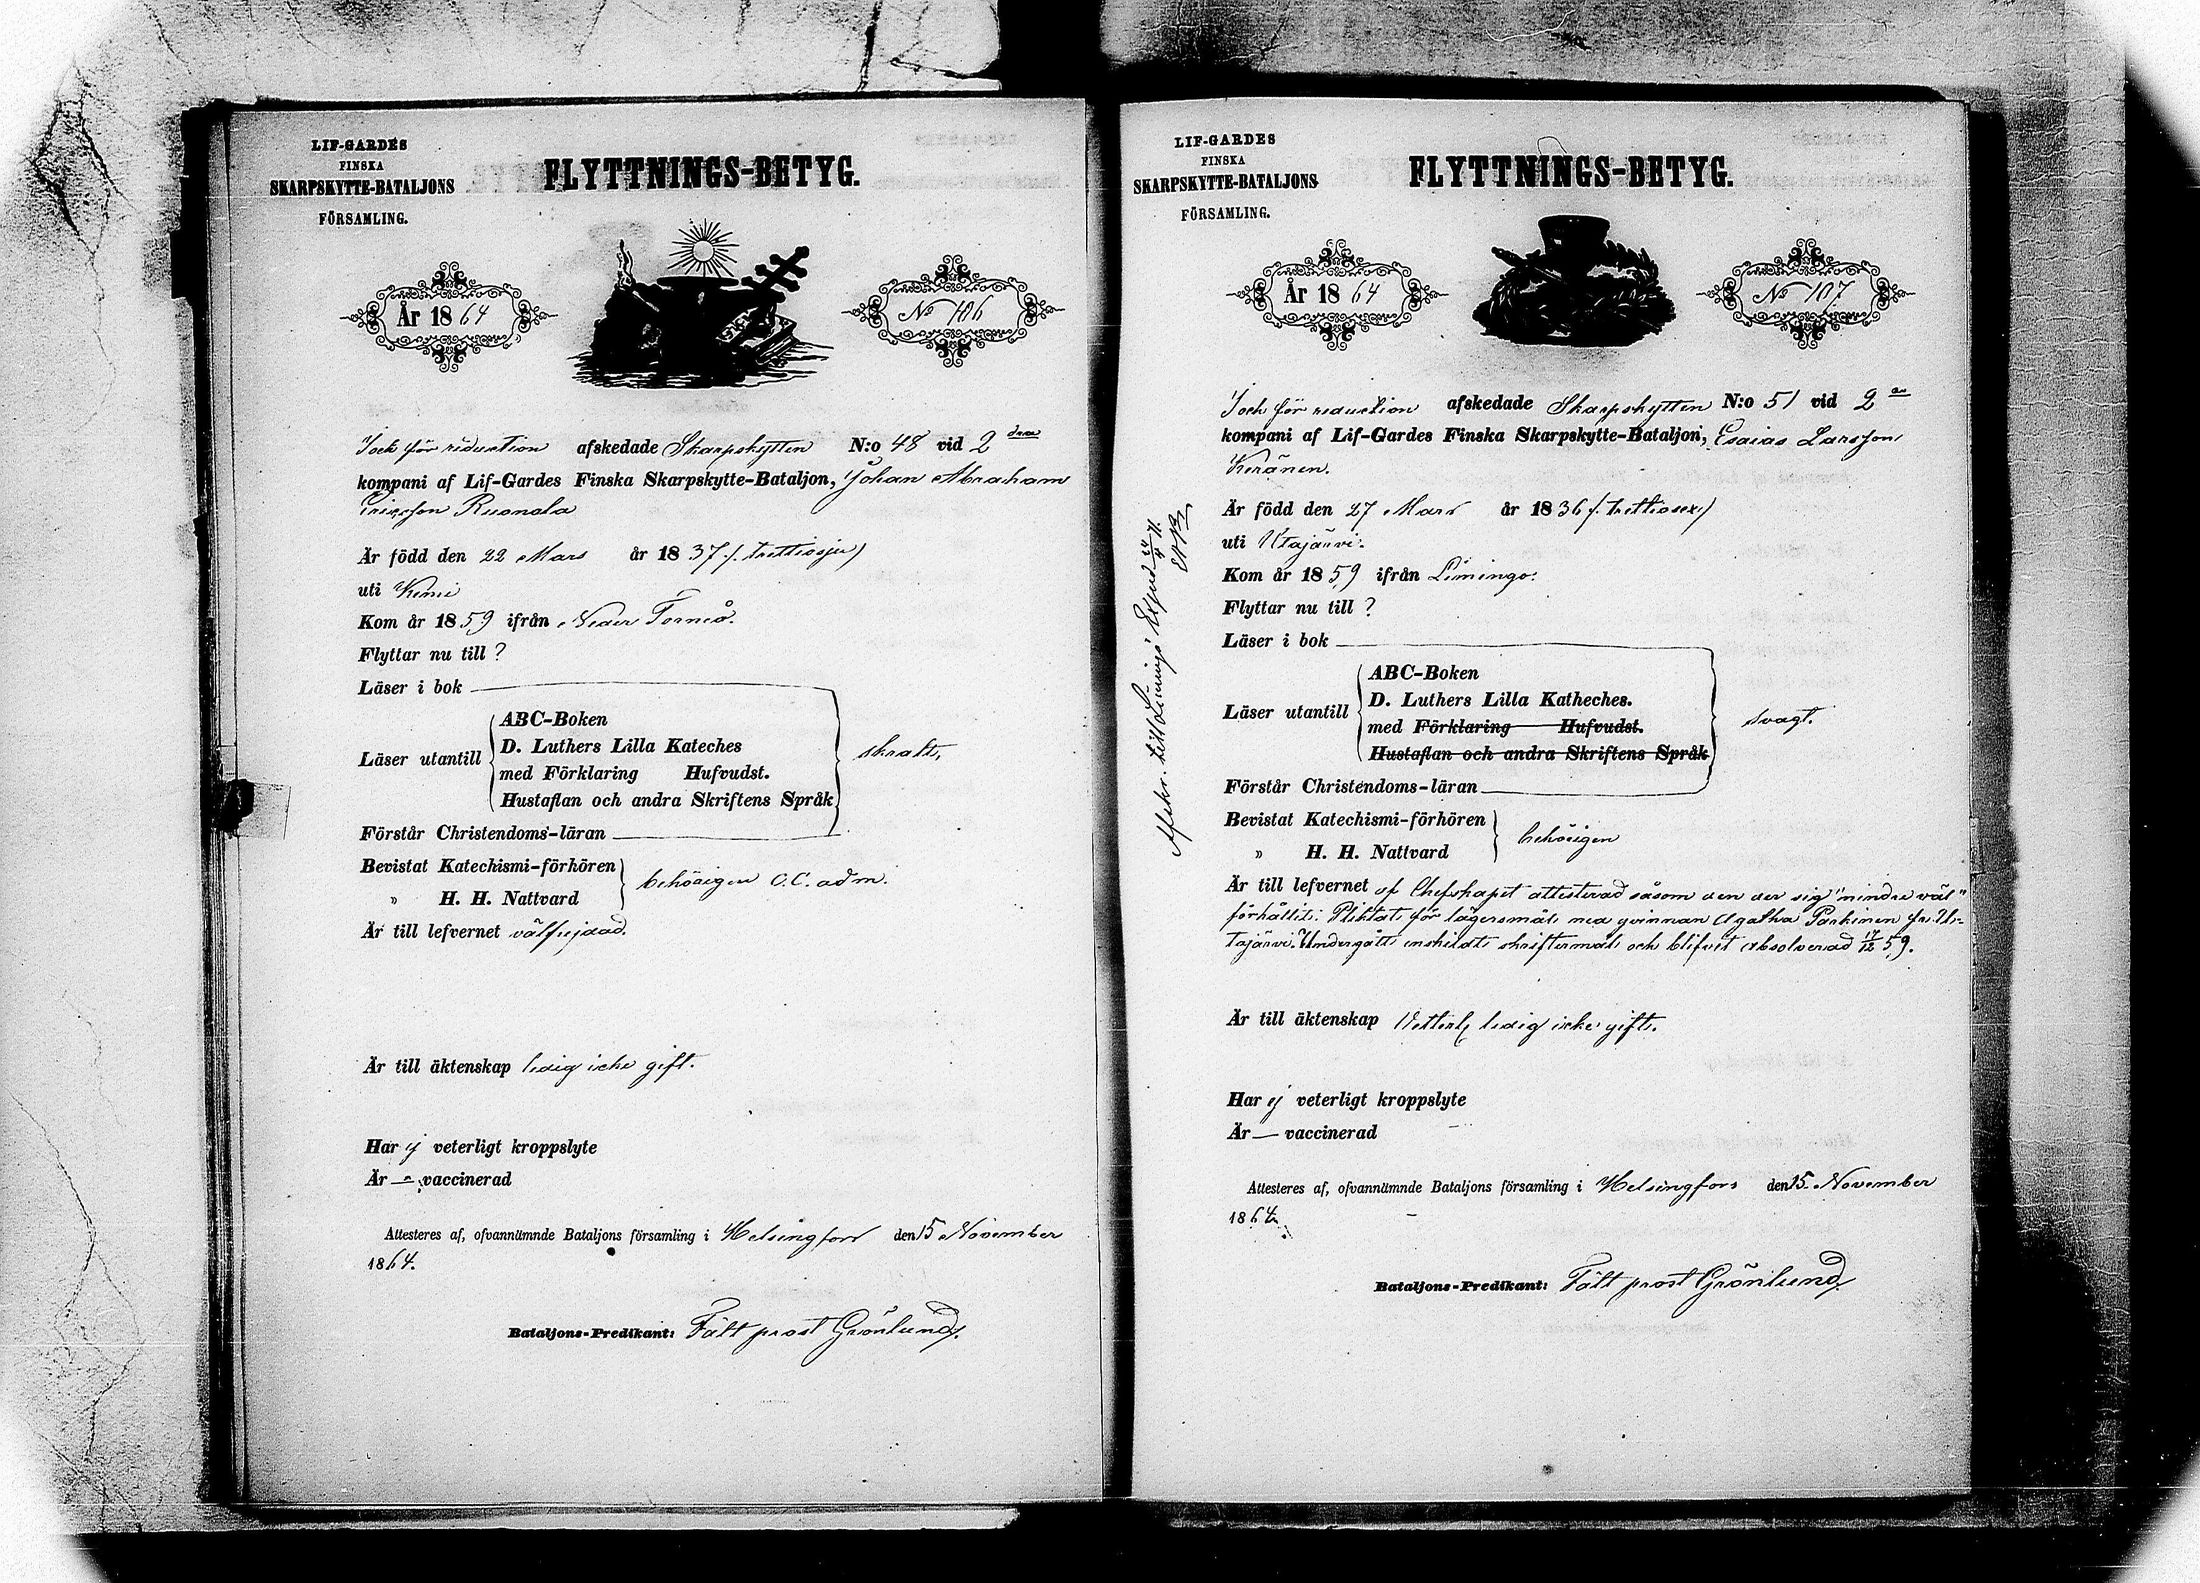 LIF-GARDES
FINSKA
SKARPSKYTTE-BATALJONS
FÖRSAMLING.
FLYTTNINGS-BETYG.
År 1864
No 106
för reduction afskedade Skarpskytten N:o 48 vid 2 dra
kompani af Lif-Gardes Finska Skarpskytte-Bataljon, Johan Abraham
Ericsson Ruonala
Är född den 22 Mars år 1837 /: trettiosju /
uti Kemi
Kom år 1859 ifrån Neder Torneå.
Flyttar nu till ?
Läser i bok
Läser utantill
ABC-Boken
D. Luthers Lilla Kateches
med Förklaring Hufvudst.
Hustaflan och andra Skriftens Språk
Förstår Christendoms-läran
Bevistat Katechismi-förhören
" H. H. Nattvard
behörigen O.C. adm.
Är till lefvernet välfrejdad.
Är till äktenskap ledig icke gift.
Har ej veterligt kroppslyte
Är — vaccinerad
Attesteres af, ofvannämnde Bataljons församling i Helsingfors den 15 November
1864.
Bataljons-Predikant: Fält prost Grönlund.
LIF-GARDES
FINSKA
SKARPSKYTTE-BATALJONS
FÖRSAMLING.
FLYTTNINGS-BETYG.
År 1864
No 107
för reduction afskedade Skarpskytten N:o 51 vid 2
kompani af Lif-Gardes Finska Skarpskytte-Bataljon, Esaias Larsson
Keränen.
Är född den 27 Mars år 1836 /: trettiosex /
uti Utajärvi.
Kom år 1859 ifrån Limingo.
Flyttar nu till ?
Läser i bok
Läser utantill
ABC-Boken
D. Luthers Lilla Katheches.
med Förklaring Hufvudst.
Hustaflan och andra Skriftens Språk
svagt.
Förstår Christendoms-läran
Bevistat Katechismi-förhören
" H. H. Nattvard
behörigen
Är till lefvernet af Chefskapet attesterad såsom den der sig "mindre väl"
förhållit. Pliktat för lägersmål med qvinnan Agatha Parkinen fr. U-
tajärvi. Undergått enskildt skriftermål och blifvit absolverad 17/12 59.
Är till äktenskap ledig icke gift.
Har ej veterligt kroppslyte
Är — vaccinerad
Attesteres af, ofvannämnde Bataljons församling i Helsingfors den 15. November
1864.
Bataljons-Predikant: Fält prost Grönlund.
till Limingo